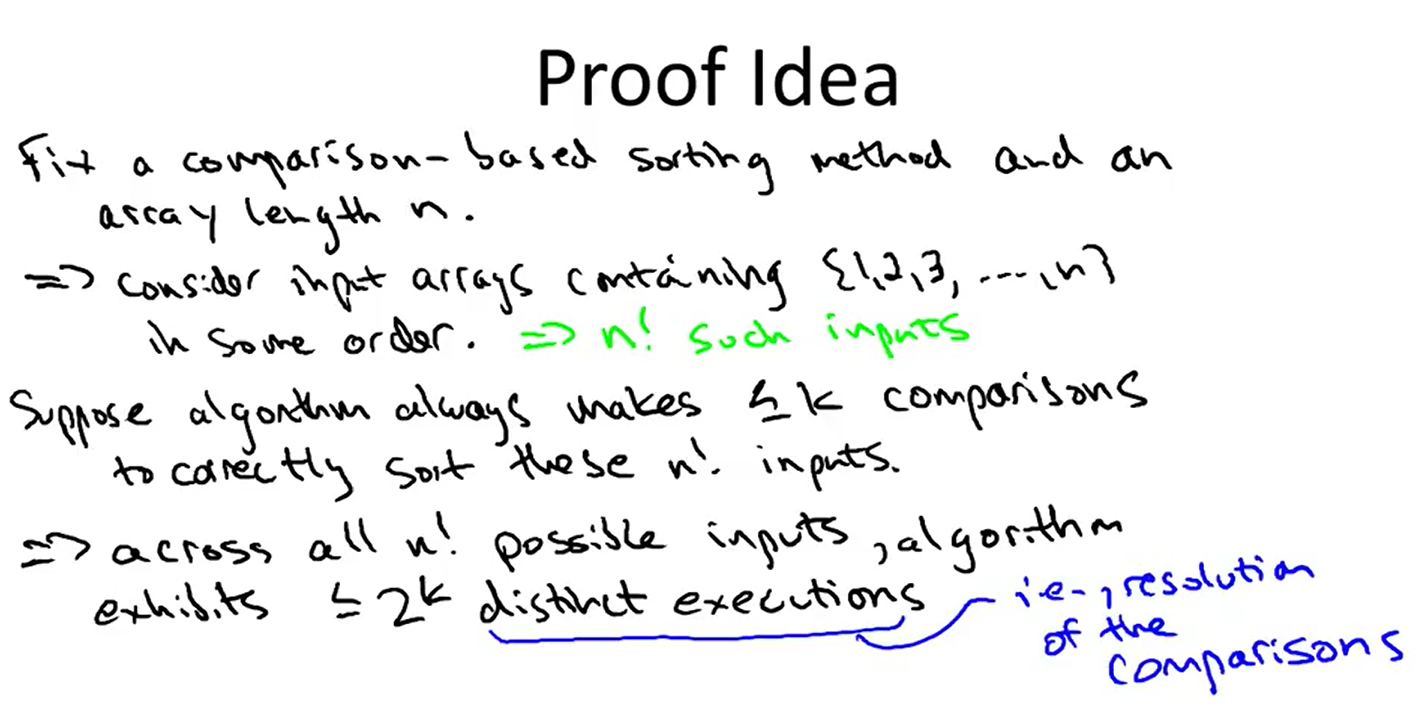 Proof Idea
Fix a comparison-based sorting method and an
array length n.
=> consider input arrays containing {1,2,3, ...,n}
in some order. => n! such inputs
Suppose algorithm always makes ≤k comparisons
to correctly sort these n! inputs.
=> across all n! possible inputs, algorithm
exhibits ≤2^k distinct executions
i.e., resolution
of the
comparisons